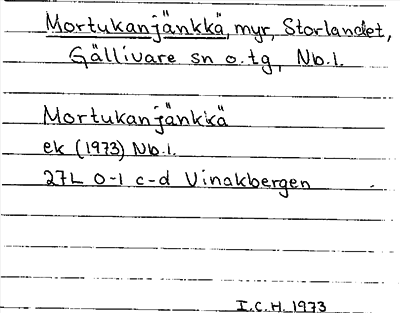 Mortukanjänkkä, myr, Storlandet,
Gällivare sn o. tg, Nb. l.
Mortukanjänkkä
ek (1973) Nb. l.
27L 0-1 c-d Vinakbergen
I.C.H. 1973